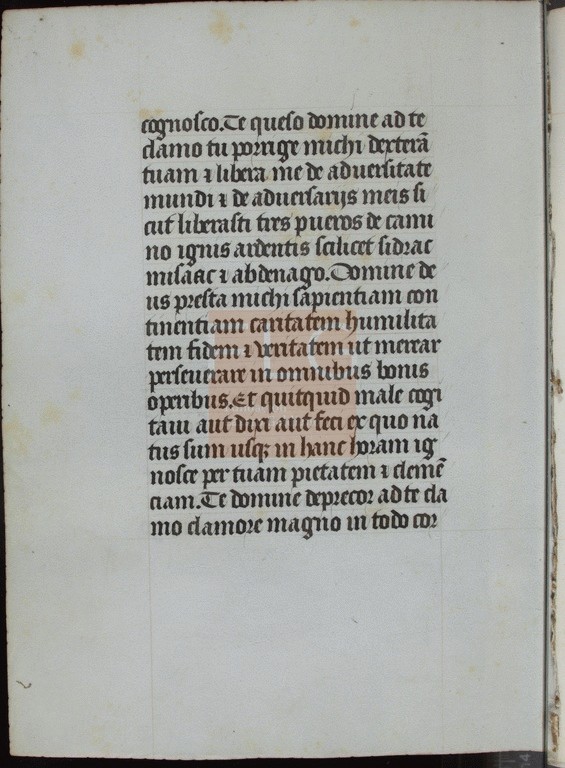 cognosco. Te queso domine ad te
clamo tu porrige michi dexterā
tuam ⁊ libera me de aduersitate
mundi ⁊ de aduersarijs meis si
cut liberasti tres pueros de cami
no ignis ardentis scilicet sidrac
misaac ⁊ abdenago. Domine de
us presta michi sapientiam con
tinentiam caritatem humilita
tem fidem ⁊ veritatem ut merear
perseuerare in omnibus bonis
operibus. Et quitquid male cogi
taui aut dixi aut feci ex quo na
tus sum usqꝫ in hanc horam ig
nosce per tuam pietatem ⁊ clemē
ciam. Te domine deprecor ad te cla
mo clamore magno in todo cor